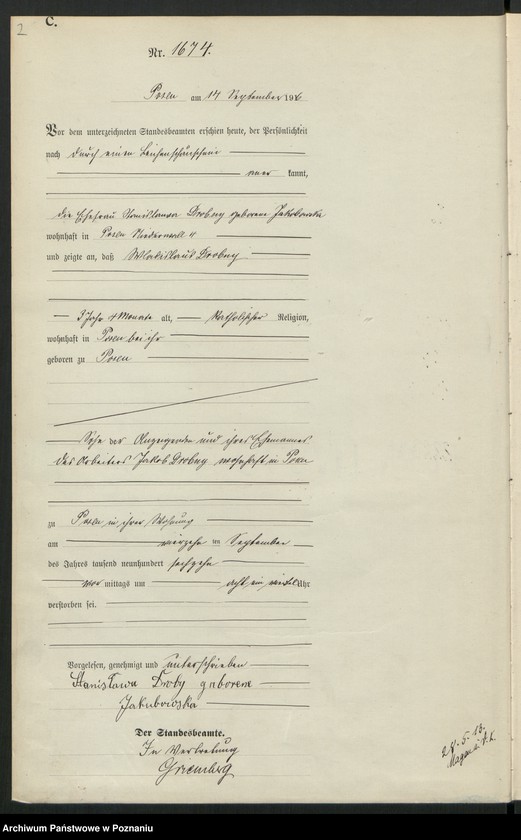 2
C.
Nr. 1674.
Posen am 14 September 1916
Vor dem unterzeichneten Standesbeamten erschien heute, der Persönlichkeit
nach durch einen Leichenschauschein
aner kannt,
die Ehefrau Stanislawa Drobny geborene Jakubowska
wohnhaft in Posen Niederwall 4
und zeigte an, daß Wladislaus Drobny
3 Jahr 4 Monate alt, katholischer Religion,
wohnhaft in Posen bei ihr
geboren zu Posen
Sohn der Anzeigenden und ihres Ehemannes
des Arbeiters Jakob Drobny wohnhaft in Posen
zu Posen in ihrer Wohnung
am vierzehn ten September
des Jahres tausend neunhundert sechzehn
vor mittags um acht ein viertel Uhr
verstorben sei.
Vorgelesen, genehmigt und unterschrieben
Stanisława Droby geborene
Jakubowska
Der Standesbeamte.
In Vertretung
Archiwum Państwowe w Poznaniu